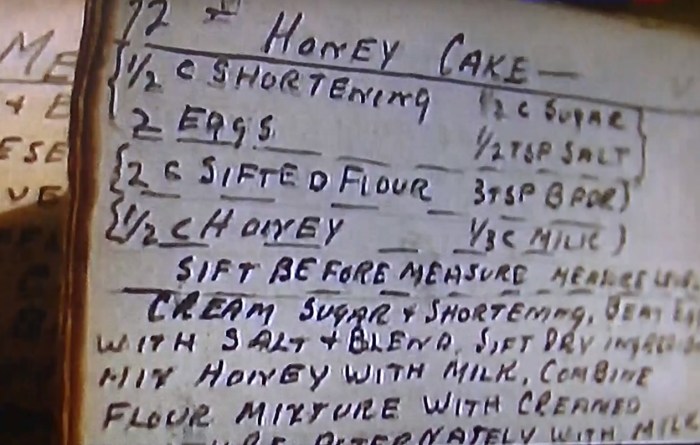 12 - HONEY CAKE —
1/2 C SHORTENING 1/2 C SUGAR
2 EGGS 1/2 TSP SALT
2 C SIFTED FLOUR 3 TSP B PDR
1/2 C HONEY 1/3 C MILK
SIFT BEFORE MEASURE MEASURE
CREAM SUGAR & SHORTENING, BEAT
WITH SALT & BLEND. SIFT DRY
MIX HONEY WITH MILK, COMBINE
FLOUR MIXTURE WITH CREAMED
ALTERNATELY WITH MILK